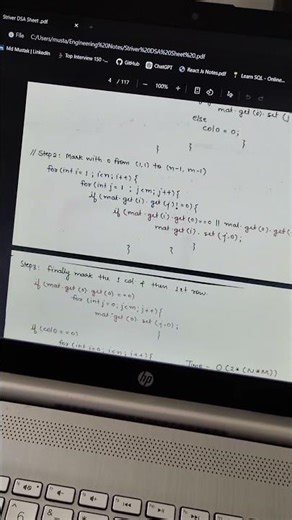 Striver DSA Sheet .pdf
File C:/Users/musta/Engineering%20Notes/Striver%20DSA%20Sheet%20.pdf
Md Mustak | LinkedIn Top Interview 150 -... GitHub ChatGPT React Js Notes.pdf Learn SQL - Online...
4 / 117 100%
mat.get(0).set(j
else
col0 = 0;
}
} }
// Step 2: Mark with 0 from (1,1) to (n-1, m-1)
for(int i=1; i<n; i++) {
for(int j=1; j<m; j++) {
if (mat.get(i).get(j) != 0) {
if (mat.get(i).get(0)==0 || mat.get(0).get
mat.get(i).set(j,0);
}
} }
Step 3: Finally mark the 1 col & then 1st row.
if (mat.get(0).get(0)==0)
for(int j=0; j<m; j++) {
mat.get(0).set(j,0);
}
if (col0==0)
for(int i=0; i<n; i++) {
Time - O(2*(N*M))
hp